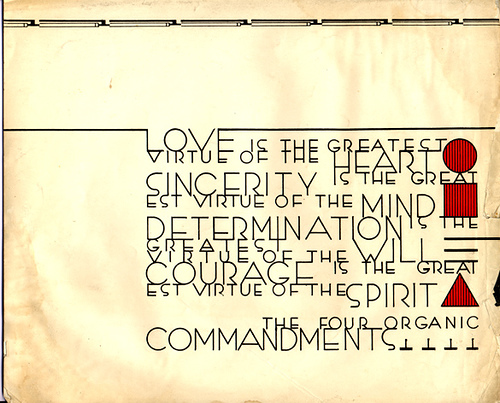 LOVE IS THE GREATEST
VIRTUE OF THE HEART
SINCERITY IS THE GREAT
EST VIRTUE OF THE MIND
DETERMINATION IS THE
GREATEST
VIRTUE OF THE WILL
COURAGE IS THE GREAT
EST VIRTUE OF THE SPIRIT
THE FOUR ORGANIC
COMMANDMENTS